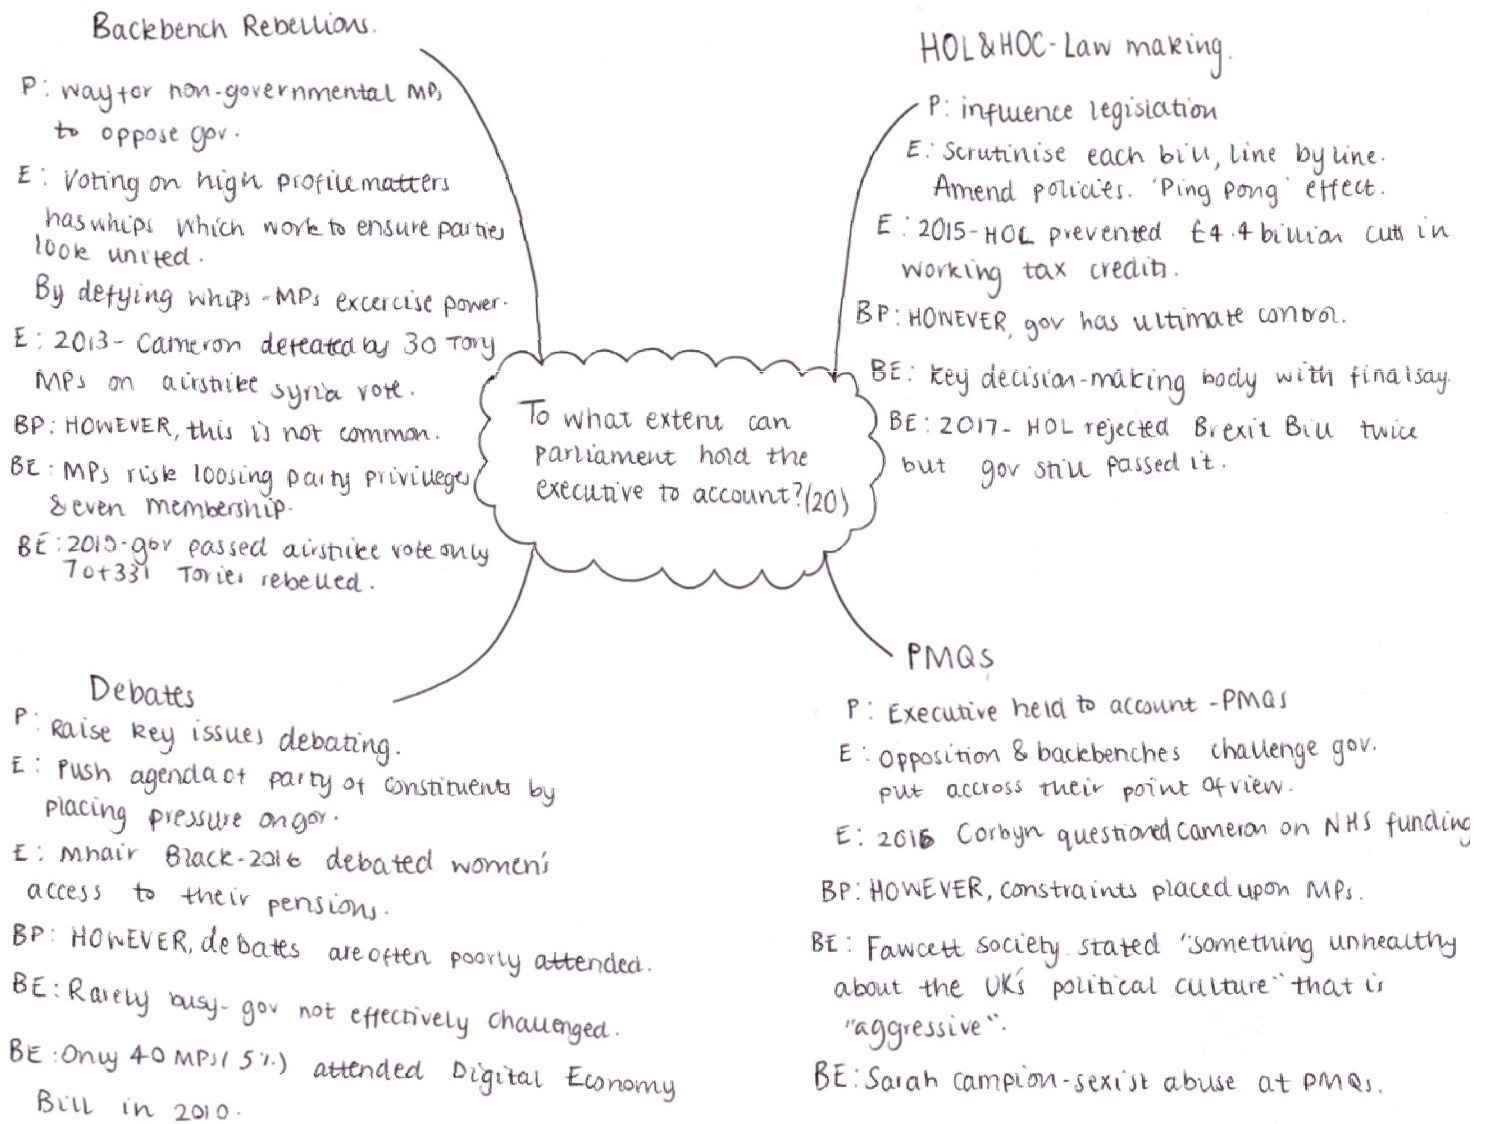 Backbench Rebellions.
P: way for non-governmental MPs
to oppose gov.
E: Voting on high profile matters
has whips which work to ensure parties
look united.
By defying whips - MPs excercise power.
E: 2013- Cameron defeated by 30 Tory
MPs on airstrike syria vote.
BP: HOWEVER, this is not common.
BE: MPs risk loosing party privilleges
& even membership.
BE: 2015-gov passed airstrike vote only
7 of 331 Tories rebelled.
HOL&HOC-Law making.
P: influence legislation
E: Scrutinise each bill, line by line.
Amend policies. 'Ping pong' effect.
E: 2015-HOL prevented £4.4 billion cuts in
working tax credits.
BP: HOWEVER, gov has ultimate control.
BE: key decision-making body with final say.
BE: 2017- HOL rejected Brexit Bill twice
but gov still passed it.
To what extent can
parliament hold the
executive to account?(20)
Debates
P: Raise key issues debating.
E: Push agenda of party of constituents by
placing pressure on gov.
E: Mhair Black-2016 debated women's
access to their pensions.
BP: HOWEVER, debates are often poorly attended.
BE: Rarely busy- gov not effectively challenged.
BE: Only 40 MPs (5%) attended Digital Economy
Bill in 2010.
PMQs
P: Executive held to account -PMQs
E: Opposition & backbenches challenge gov.
put accross their point of view.
E: 2016 Corbyn questioned Cameron on NHS funding
BP: HOWEVER, constraints placed upon MPs.
BE: Fawcett society stated "something unhealthy
about the UK's political culture" that is
"aggressive".
BE: Sarah campion-sexist abuse at PMQs.